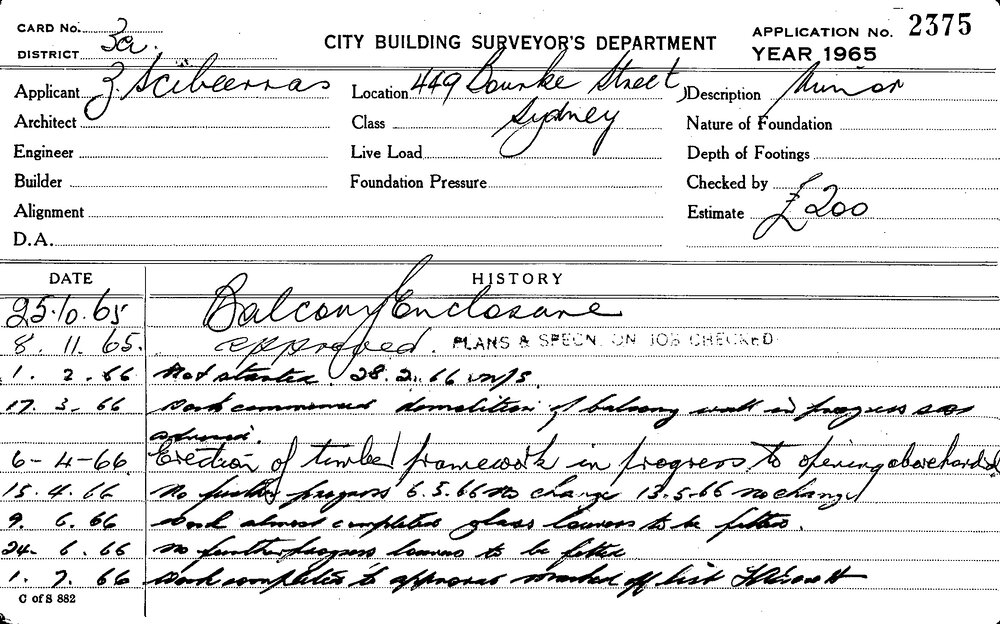 CARD No.
DISTRICT 3a.
CITY BUILDING SURVEYOR'S DEPARTMENT
APPLICATION No. 2375
YEAR 1965
Applicant Z. Scibeerras
Location 449 Bourke Street Sydney
Description Minor
Architect
Class
Nature of Foundation
Engineer
Live Load
Depth of Footings
Builder
Foundation Pressure
Checked by
Alignment
Estimate £200
D.A.
DATE HISTORY
25.10.65 Balcony Enclosure
8.11.65. approved. PLANS & SPECN. ON JOB CHECKED
1.2.66 Not started. 28.2.66 n/s.
17.3.66 Work commenced demolition of balcony wall in progress
advised.
6-4-66. Erection of timber framework in progress to opening above
15.4.66 No further progress 6.5.66 no change 13.5.66 no change
9.6.66 Work almost completed glass louvres to be fitted.
24-6.66 No further progress louvres to be fitted
1.7.66 Work completed to approval marked off list
C of S 882